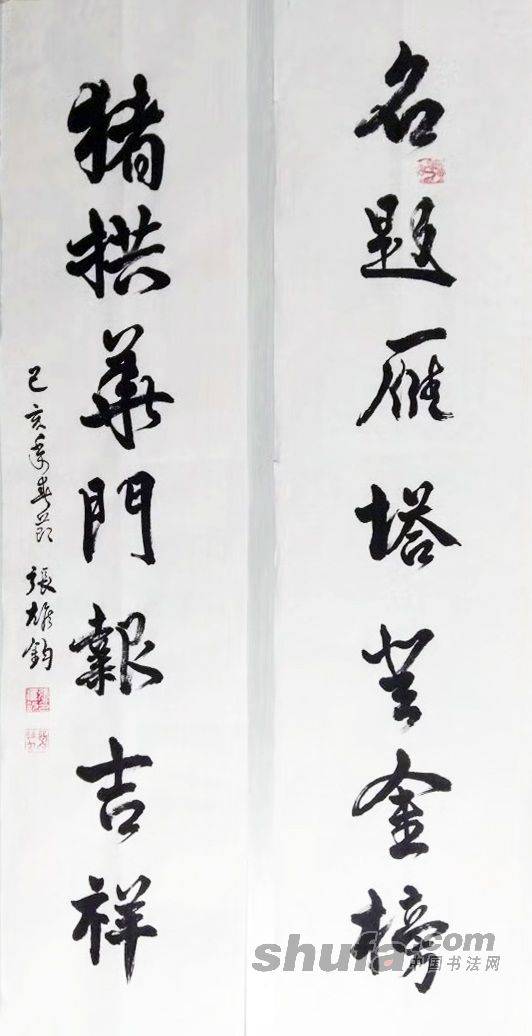 名題雁塔登金榜
猪拱華門報吉祥
己亥年春節 張雄鈞
shufa.com
中国书法网